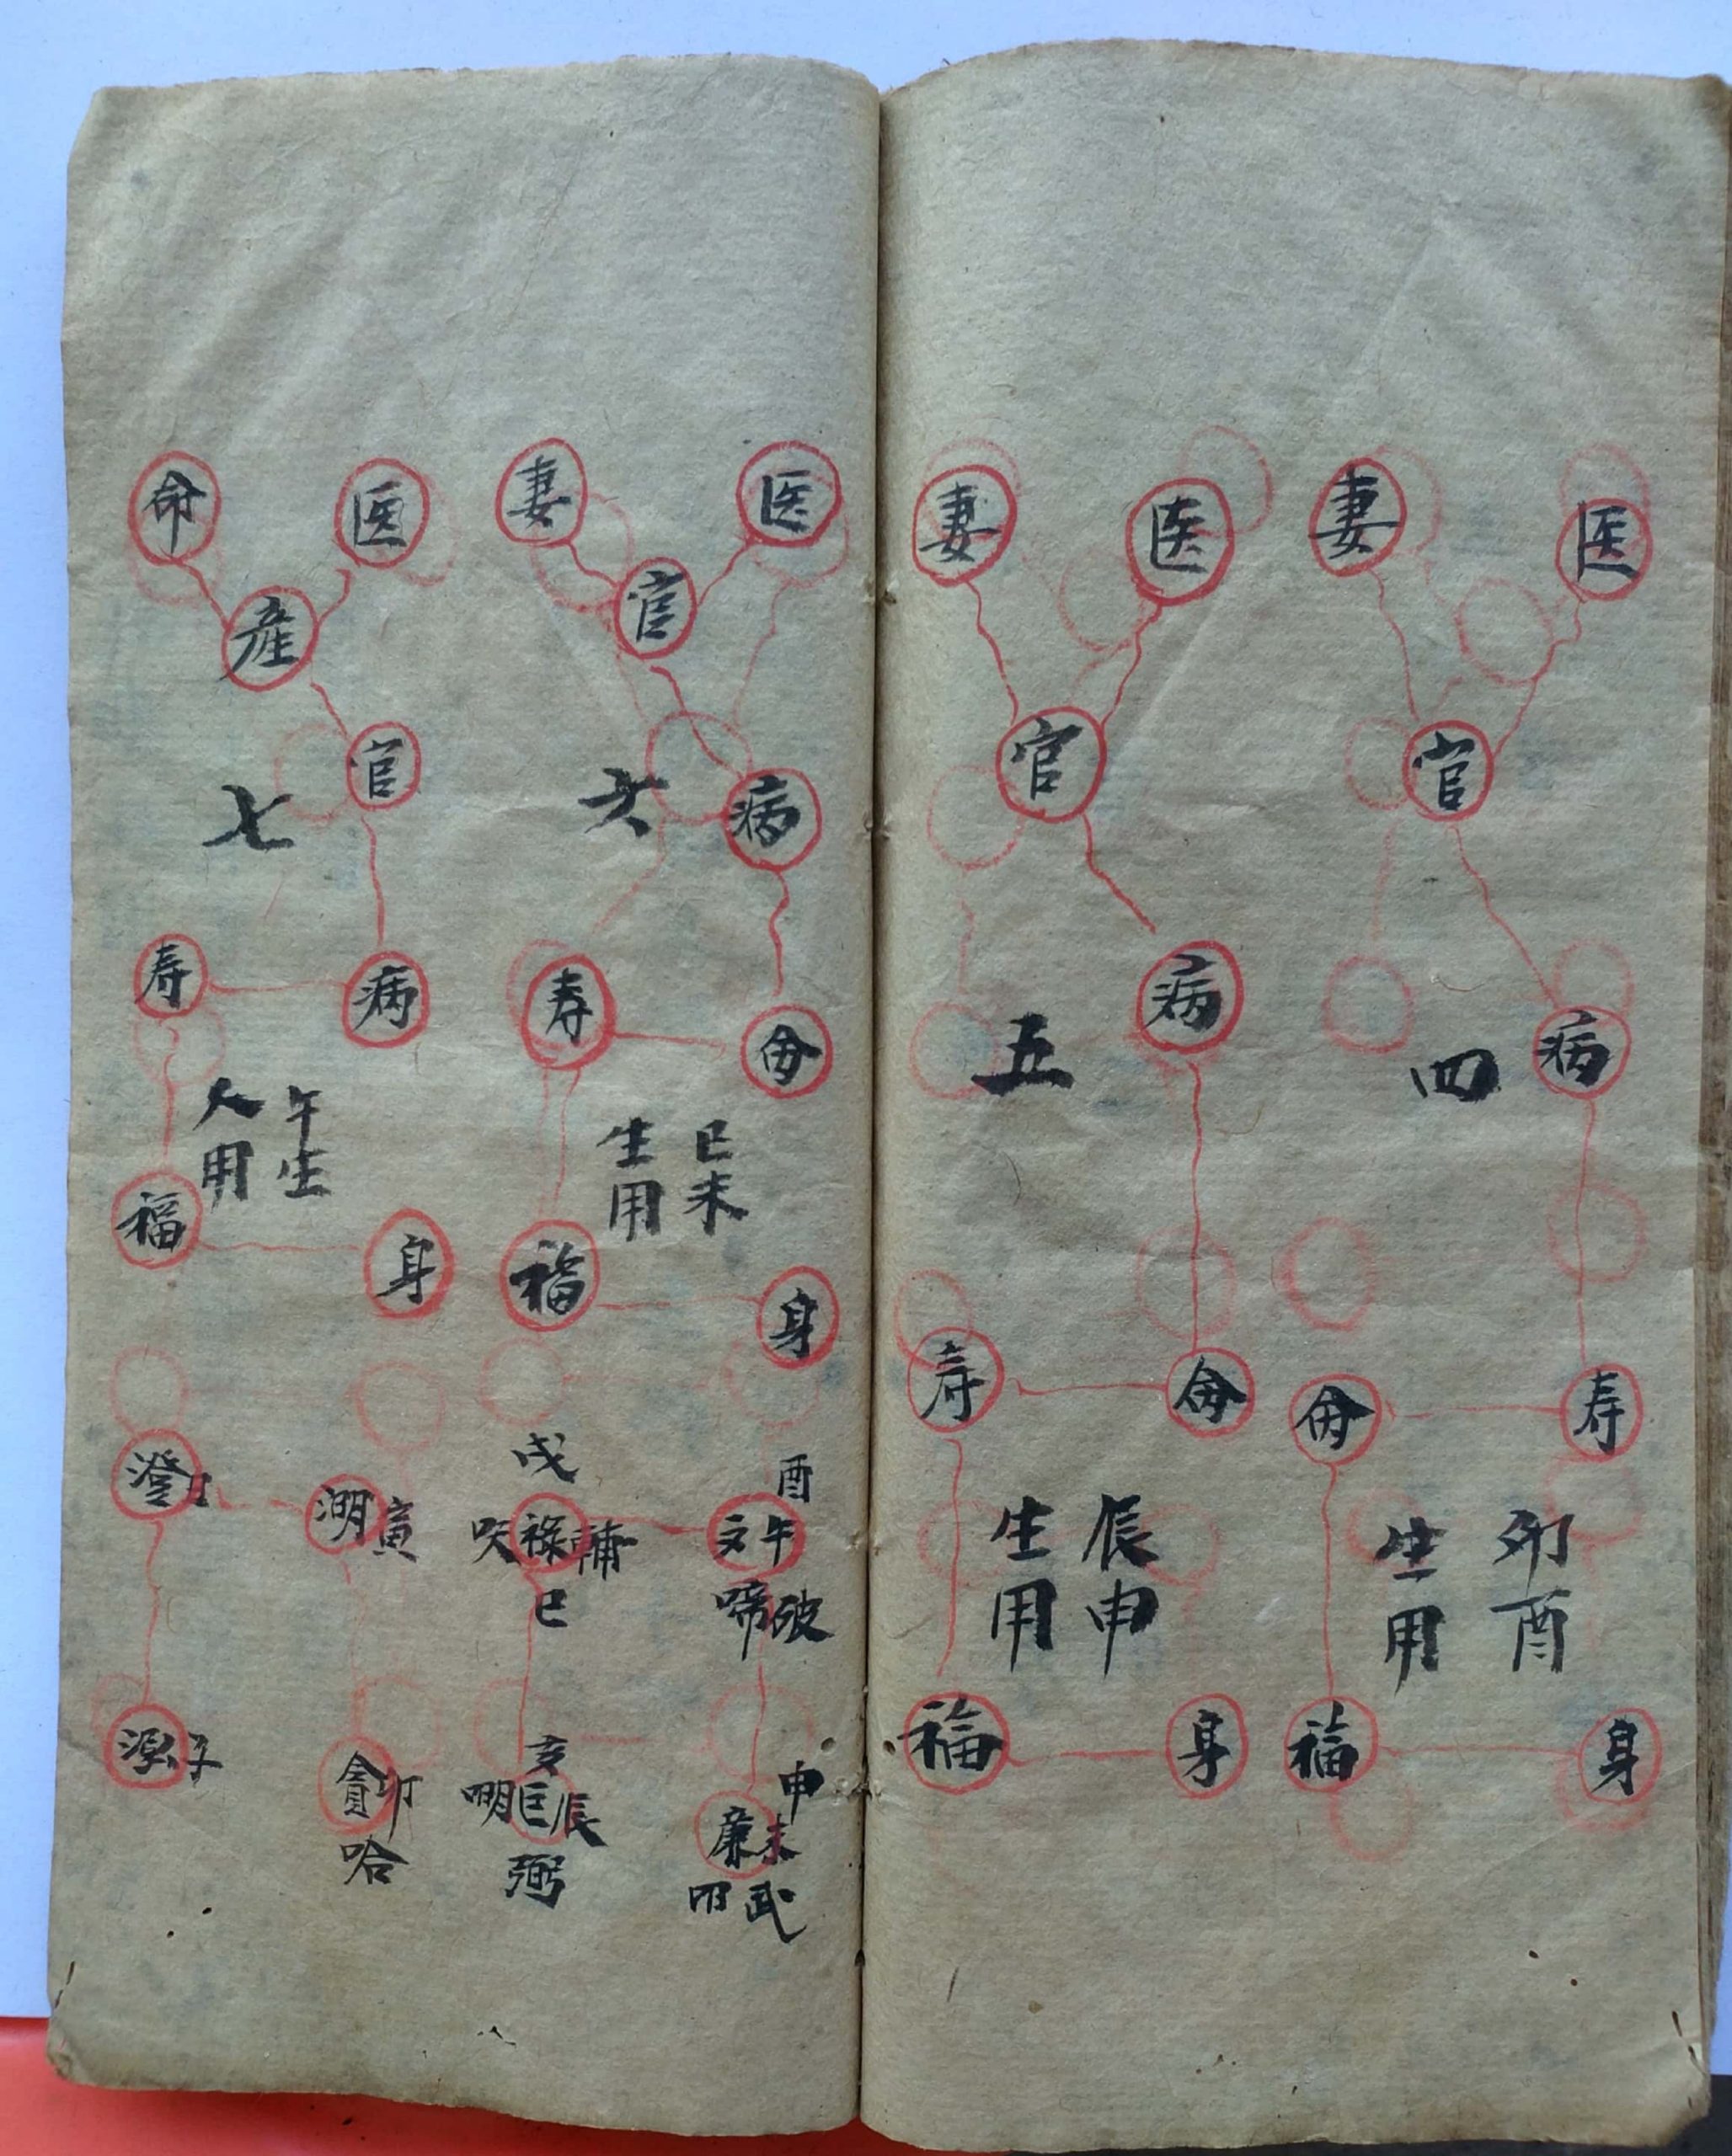 医
妻
官
病
四
寿
毋
卯酉
生用
福
身
医
妻
官
病
五
寿
毋
辰申
生用
福
身
医
妻
官
病
六
寿
毋
巳未
生用
福
身
酉
文午
啼破
戌
禄輔
巳
申
廉未
武
亥
明巨辰
弼
医
命
産
官
七
寿
病
午生
人用
福
身
澄
寅
子
貪卯
哈